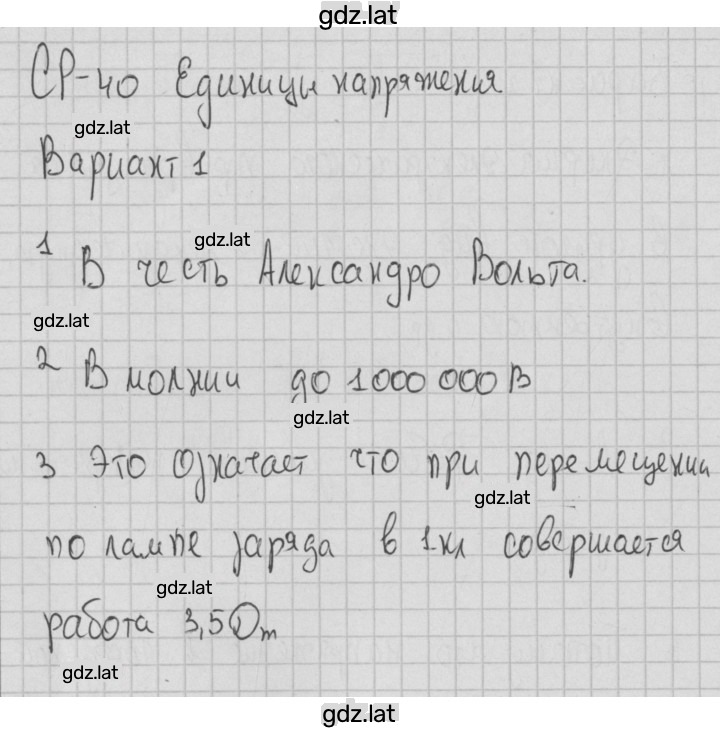 gdz.lat
СР-40 Единицы напряжения
gdz.lat
Вариант 1
gdz.lat
1 В честь Александро Вольта.
gdz.lat
2 В молнии до 1000 000 В
gdz.lat
3 Это означает что при перемещении
gdz.lat
по лампе заряда в 1кл совершается
gdz.lat
работа 3,5 Дж
gdz.lat
gdz.lat